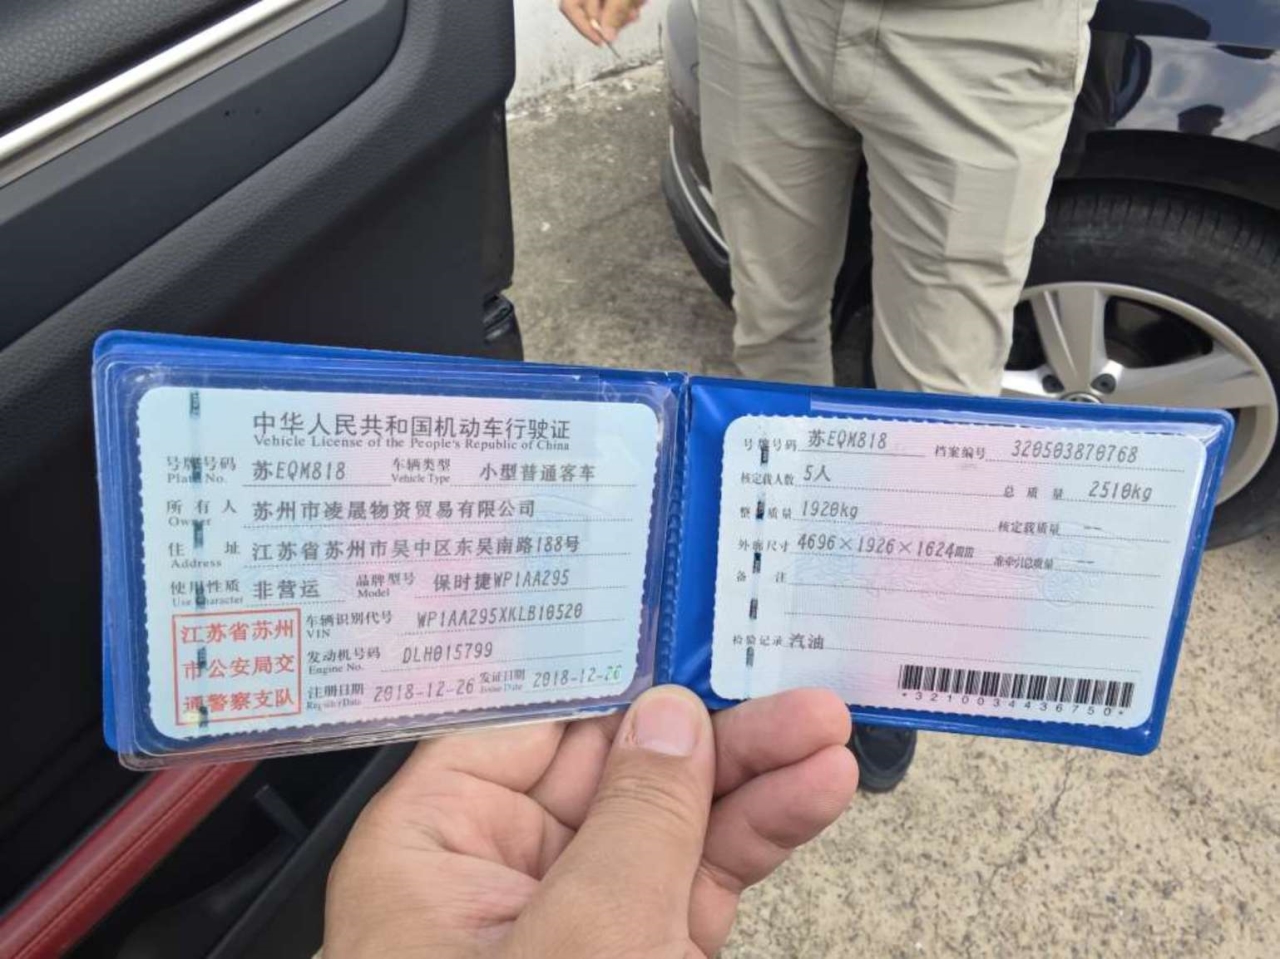 中华人民共和国机动车行驶证
Vehicle License of the People's Republic of China
号牌号码 苏EQM818 车辆类型 小型普通客车
Plate No. Vehicle Type
所有人 苏州市凌晟物资贸易有限公司
Owner
住址 江苏省苏州市吴中区东吴南路188号
Address
使用性质 非营运 品牌型号 保时捷WP1AA295
Use Character Model
江苏省苏州
市公安局交
通警察支队
车辆识别代号 WP1AA295XKLB10520
VIN
发动机号码 DLH015799
Engine No.
注册日期 2018-12-26 发证日期 2018-12-26
Register Date Issue Date
号牌号码 苏EQM818 档案编号 320503870768
核定载人数 5人 总质量 2510kg
整备质量 1920kg 核定载质量 --
外廓尺寸 4696×1926×1624mm 准牵引总质量 --
备注
检验记录 汽油
*3210034436750*